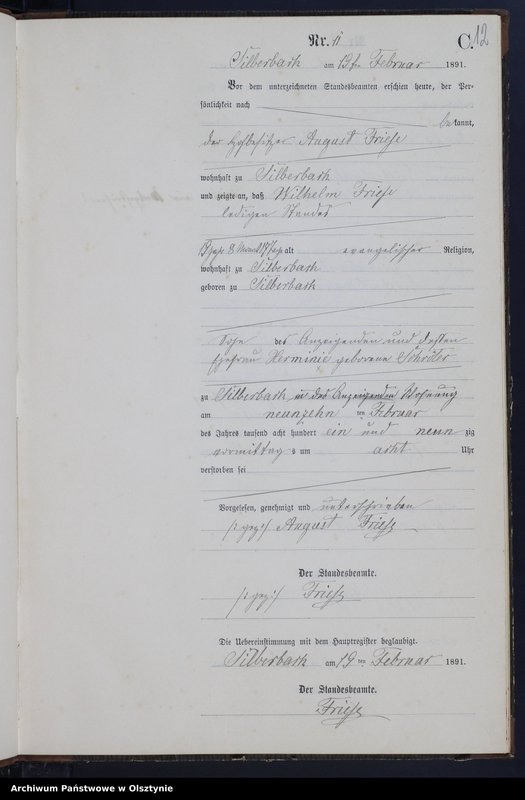 C. 12
Nr. 11
Silberbach am 19ten Februar 1891.
Vor dem unterzeichneten Standesbeamten erschien heute, der Per-
sönlichkeit nach
bekannt,
der Hofbesitzer August Friese
wohnhaft zu Silberbach
und zeigte an, daß Wilhelm Friese
ledigen Standes
8 Monat 17 Tage alt evangelischer Religion,
wohnhaft zu Silberbach
geboren zu Silberbach
Sohn des Anzeigenden und dessen
Ehefrau Hermine geborene Schröter
zu Silberbach in des Anzeigenden Wohnung
am neunzehn ten Februar
des Jahres tausend acht hundert ein und neun zig
vormittag s um acht Uhr
verstorben sei
Vorgelesen, genehmigt und unterschrieben
(: gez :) August Friese
Der Standesbeamte.
(: gez :) Friese
Die Uebereinstimmung mit dem Hauptregister beglaubigt.
Silberbach am 19 ten Februar 1891.
Der Standesbeamte.
Friese
Archiwum Państwowe w Olsztynie